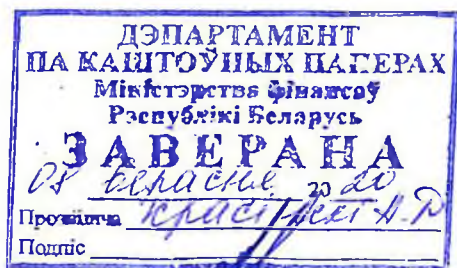 ДЭПАРТАМЕНТ
ПА КАШТОЎНЫХ ПАПЕРАХ
Міністэрства фінансаў
Рэспублікі Беларусь
ЗАВЕРАНА
08 верасня 20 20
Прозвішча
Подпіс